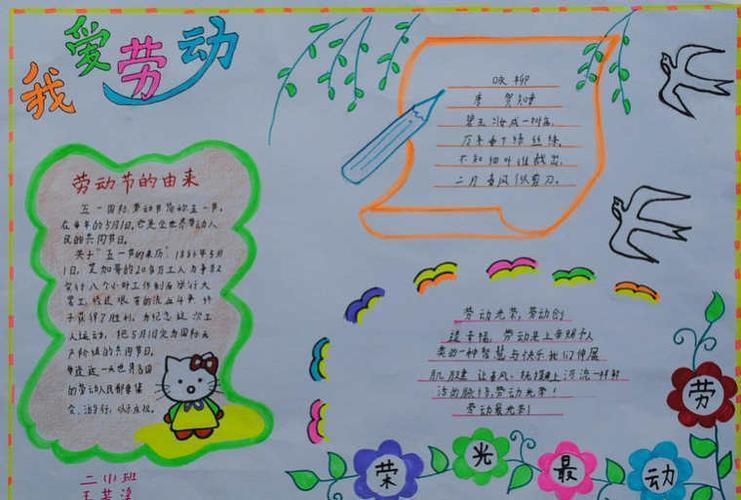 我爱劳动
劳动节的由来
五一国际劳动节简称五一节,
在每年的5月1日。它是全世界劳动人
民的共同节日。
关于"五一节的来历":1886年5月
1日,芝加哥的20多万工人为争取
实行八个小时工作制而举行大
罢工,经过艰苦的流血斗争,终
于获得了胜利。为纪念这次工
人运动,把5月1日定为国际无
产阶级的共同节日。
每逢这一天世界各国
的劳动人民都要集
会、游行,以示庆祝。
二小班
咏柳
唐 贺知章
碧玉妆成一树高,
万条垂下绿丝绦。
不知细叶谁裁出,
二月春风似剪刀。
劳动光荣,劳动创
造幸福,劳动是上帝赐予人
类的一种智慧与快乐我们伸展
肌腱 让春风,抚摸 河流一样鲜
活的脉 劳动光荣!
劳动最光荣!
劳
动
最
光
荣